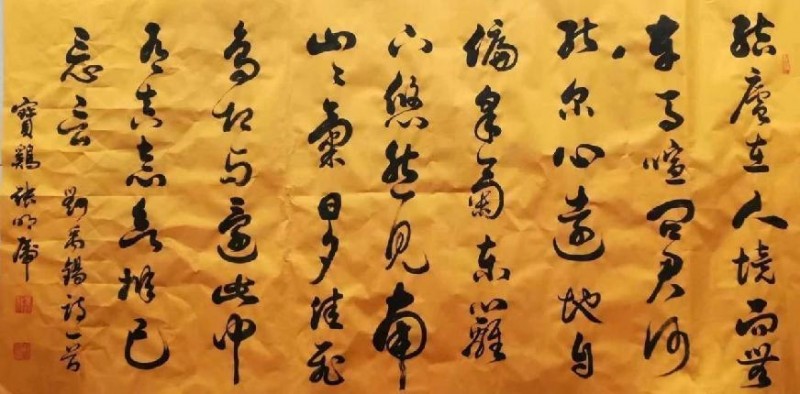 結廬在人境而無
車馬喧問君何
能尔心遠地自
偏采菊東籬
下悠然見南
山々氣日夕佳飛
鳥相与還此中
有真意欲辨已
忘言 劉禹錫詩一首
寶鷄張明虎